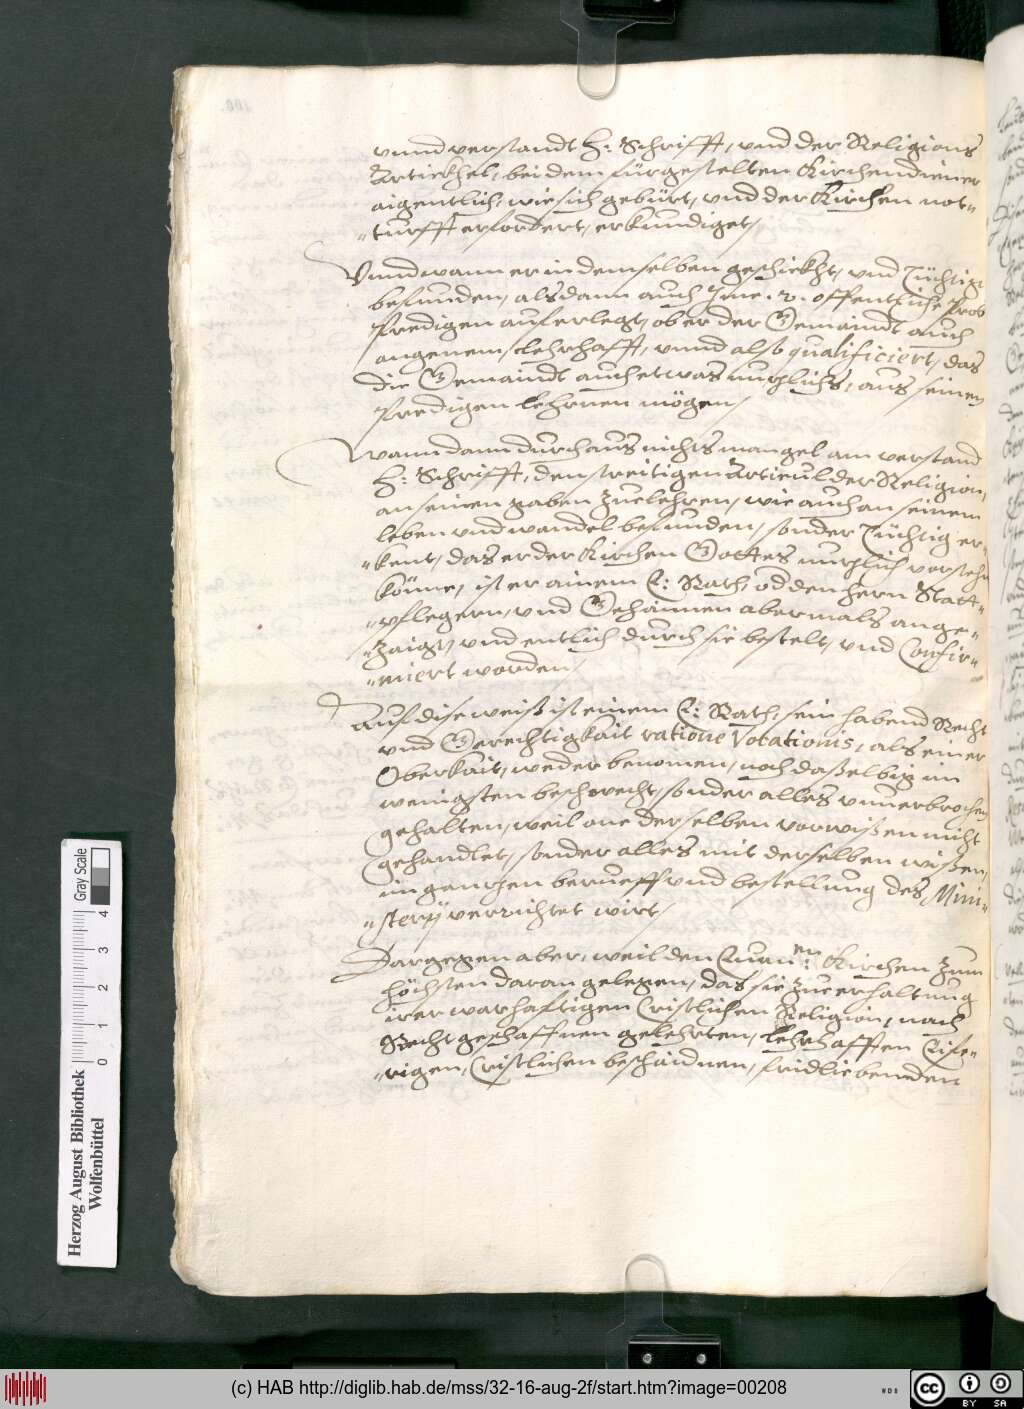 vnnd verstandt H: Schrifft, vnd der Religions
Artickhel, bei dem fürgestelten Kirchendiener
aigentlich, wie sich gebürt, vnd der Kirchen not-
-turfft erfordert, erkundiget,
Vnnd wann er in demselben geschickht, vnd Tüchtig
befunden, alsdann auch Jme .2. offentliche Prob
predigen auferlegt, ob er der Gemaindt auch
angenem, lehrhafft, vnnd also qualificiert, das
die Gemaindt auch etwas nuzlichs, aus seinen
predigen lehrnen mögen,
Wann dann durchaus nichts mangel am verstand
H: Schrifft, den streitigen Articul der Religion,
an seinen gaben zuelehren, wie auch an seinem
leben vnd wandel befunden, sonder Tüchtig er-
-kent, das er der Kirchen Gottes nuzlich vorstehn
könne, ist er ainem E: Rath, od den hern Statt-
-pflegern, vnd Gehaimen abermals ange-
-zaigt, vnd entlich durch sie bestelt, vnd Confir-
-miert worden,
Auf dise weiß ist einem E: Rath, sein habend Recht
vnd Gerechtigkait ratione Vocationis, als einer
Oberkait, weder benomen, noch daßelbig im
wenigsten beschwecht, sonder alles vnuerbrochen
gehalten, weil one derselben vorwißen nicht
gehandlet, sonder alles mit derselben wißen,
im ganzen berueff vnd bestellung des Mini-
-sterij verrichtet wirt,
Dargegen aber, weil den Euan:en Kirchen zum
höchsten daran gelegen, das sie zue erhaltung
irer warhafftigen Cristlichen Religion, nach
Recht geschaffnen gelehrten, lehrhafften Eife-
-rigen, Cristlichen bescheidnen, fridliebenden
Herzog August Bibliothek
Wolfenbüttel
0 1 2 3 4
Gray Scale
(c) HAB http://diglib.hab.de/mss/32-16-aug-2f/start.htm?image=00208
WDB
cc BY SA